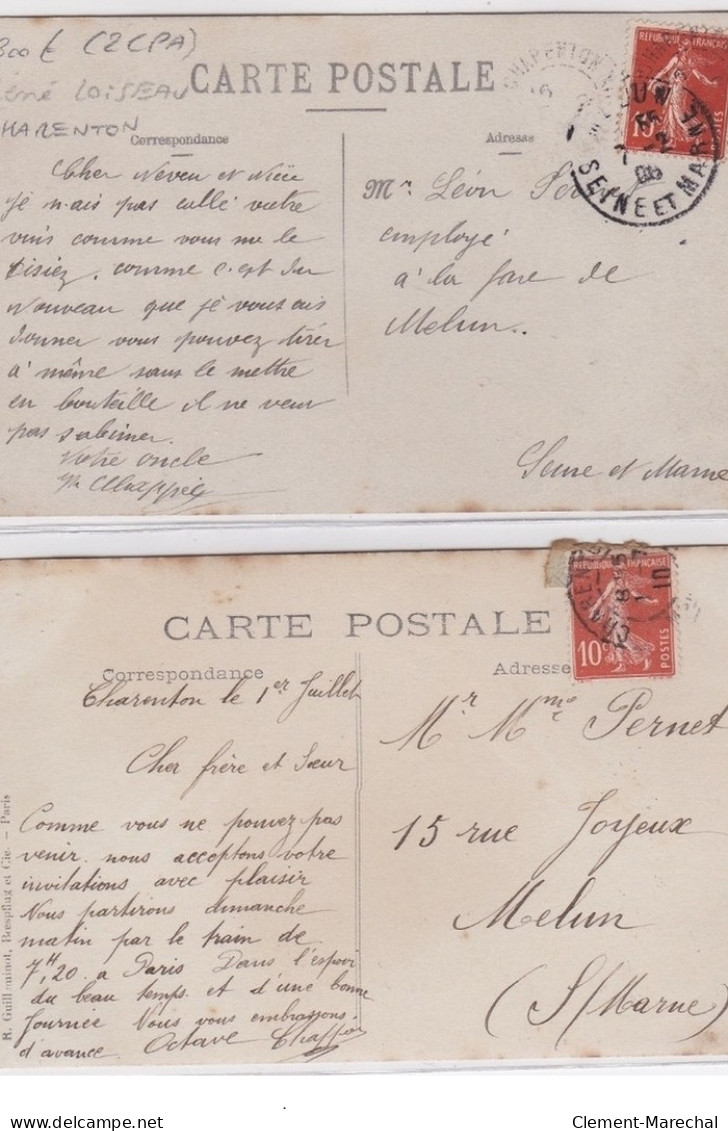 300 € (2 CPA)
René LOISEAU
CHARENTON
CARTE POSTALE
Correspondance
Adresse
Cher Neveu et Nièce
Je n.ais pas collé votre
vins comme vous me le
disiez. comme c.est du
Nouveau que je vous ais
donner vous pouvez tirer
à même sans le mettre
en bouteille il ne veut
pas s'abimer.
Votre oncle
Mr Léon
employé
à la gare de
Melun..
Seine et Marne
SEINE ET MARNE
10
CARTE POSTALE
Correspondance
Adresse
REPUBLIQUE FRANÇAISE
10c
POSTES
Charenton le 1er Juillet
Cher frère et Sœur
Comme vous ne pouvez pas
venir. nous acceptons votre
invitations avec plaisir
Nous partirons dimanche
matin par le train de
7H,20. a Paris Dans l'espoir
du beau temps. et d'une bonne
Journée Nous vous embrassons.
d'avance Octave
Mr Mme Pernet
15 rue Joyeux
Melun
(S/Marne)
R. Guilleminot, Bœspflug et Cie — Paris
Clement-Marechal